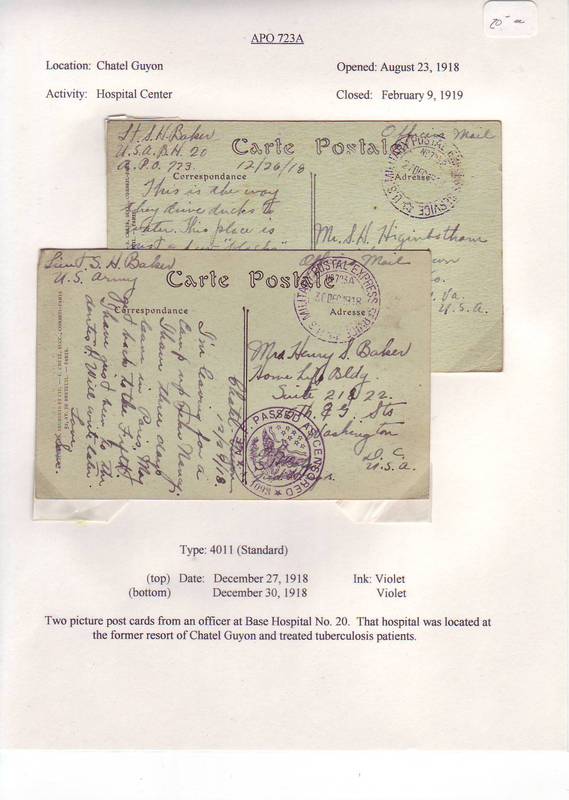 APO 723A
Location: Chatel Guyon
Opened: August 23, 1918
Activity: Hospital Center
Closed: February 9, 1919
Lt. S. H. Baker
U.S.A. B.H. 20
A.P.O. 723
Officers Mail
Carte Postale
12/26/18
Correspondance
Adresse
U.S. MILITARY POSTAL EXPRESS SERVICE
27 DEC
This is the way
they drive ducks to
water. This place is
Mr. S. H. Higinbotham
Officers Mail
Va.
U.S.A.
Lieut S. H. Baker
U.S. Army
Carte Postale
Correspondance
Adresse
U.S. MILITARY POSTAL EXPRESS SERVICE
No 723A
30 DEC 1918
Chatel Guyon
12/26/18.
I'm leaving for a
Camp up near Nancy.
I have three days
leave in Paris, Ma
got back to the
I have just been to the
dentist. Will write later.
Love
Mrs Henry S. Baker
Home Life Bldg
Suite 21 & 22.
Th. & G Sts
Washington
D.C.
U.S.A.
A.E.F. PASSED AS CENSORED
Type: 4011 (Standard)
(top) Date: December 27, 1918 Ink: Violet
(bottom) December 30, 1918 Violet
Two picture post cards from an officer at Base Hospital No. 20. That hospital was located at
the former resort of Chatel Guyon and treated tuberculosis patients.